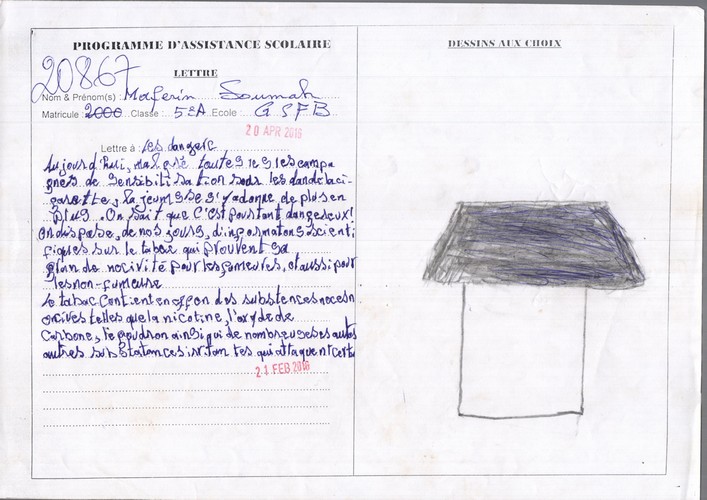 PROGRAMME D'ASSISTANCE SCOLAIRE
20867
LETTRE
Nom & Prénom(s) : Maferin Soumah
Matricule : 2000 Classe : 5èA Ecole : GSFB
20 APR 2016
Lettre à : Les dangere
Aujourd'hui, malgré toutes les campa
gnes de sensibilisation sous les dandebaci-
garette, la jeunsse s'y adonne de plus en
plus. On sait que c'est pourtant dangereux!
On dispose, de nos jours, d'informatons scienti
fiques sur le tabac qui prouvent sa
gran de nocivité pour les fumeures, et aussi pour
les non-fumeuse
le tabac contient en effon des substences
telles que la nicotine, l'oxyde de
carbone, le goudron ainsi qui de nombreuses
autres substatances irritan tes qui attaquent certe
21 FEB 2016
DESSINS AUX CHOIX